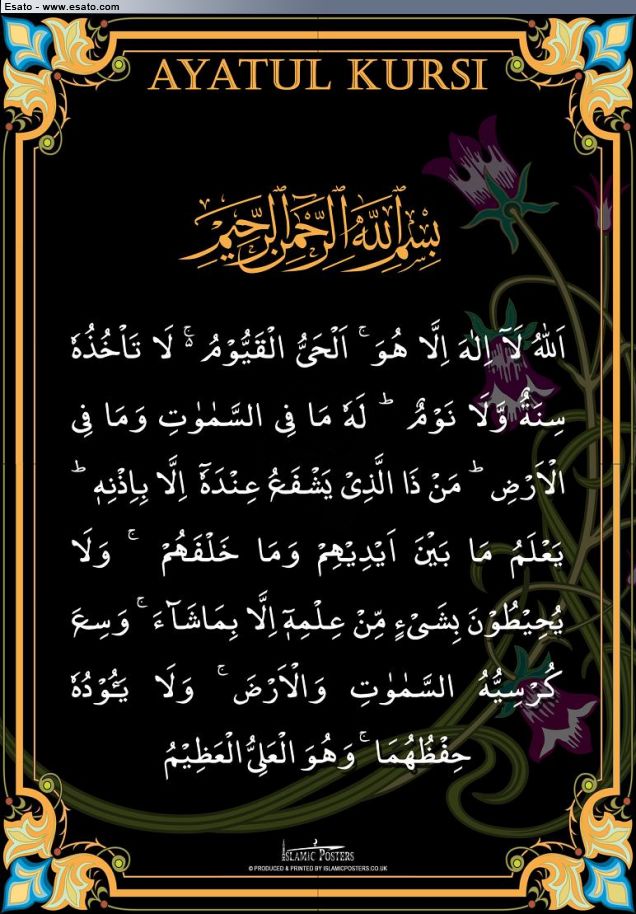 Esato - www.esato.com
AYATUL KURSI
بِسْمِ اللّٰهِ الرَّحْمٰنِ الرَّحِيْمِ
اَللّٰهُ لَآ اِلٰهَ اِلَّا هُوَ ۚ اَلْحَىُّ الْقَيُّوْمُ ۚ۬ لَا تَاْخُذُهٗ
سِنَةٌ وَّلَا نَوْمٌ ؕ لَهٗ مَا فِى السَّمٰوٰتِ وَمَا فِى
الْاَرْضِ ؕ مَنْ ذَا الَّذِىْ يَشْفَعُ عِنْدَهٗٓ اِلَّا بِاِذْنِهٖ ؕ
يَعْلَمُ مَا بَيْنَ اَيْدِيْهِمْ وَمَا خَلْفَهُمْ ۚ وَلَا
يُحِيْطُوْنَ بِشَىْءٍ مِّنْ عِلْمِهٖٓ اِلَّا بِمَاشَآءَ ۚ وَسِعَ
كُرْسِيُّهُ السَّمٰوٰتِ وَالْاَرْضَ ۚ وَلَا يَـُٔوْدُهٗ
حِفْظُهُمَا ۚ وَهُوَ الْعَلِىُّ الْعَظِيْمُ
ISLAMIC POSTERS
© PRODUCED & PRINTED BY ISLAMICPOSTERS.CO.UK